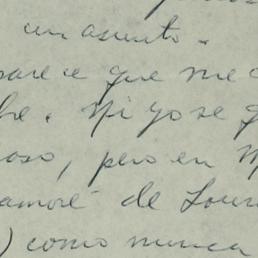 un asunto.
parece que me
. Ni yo se
oso, pero en
amoré de Lour
) como nunca